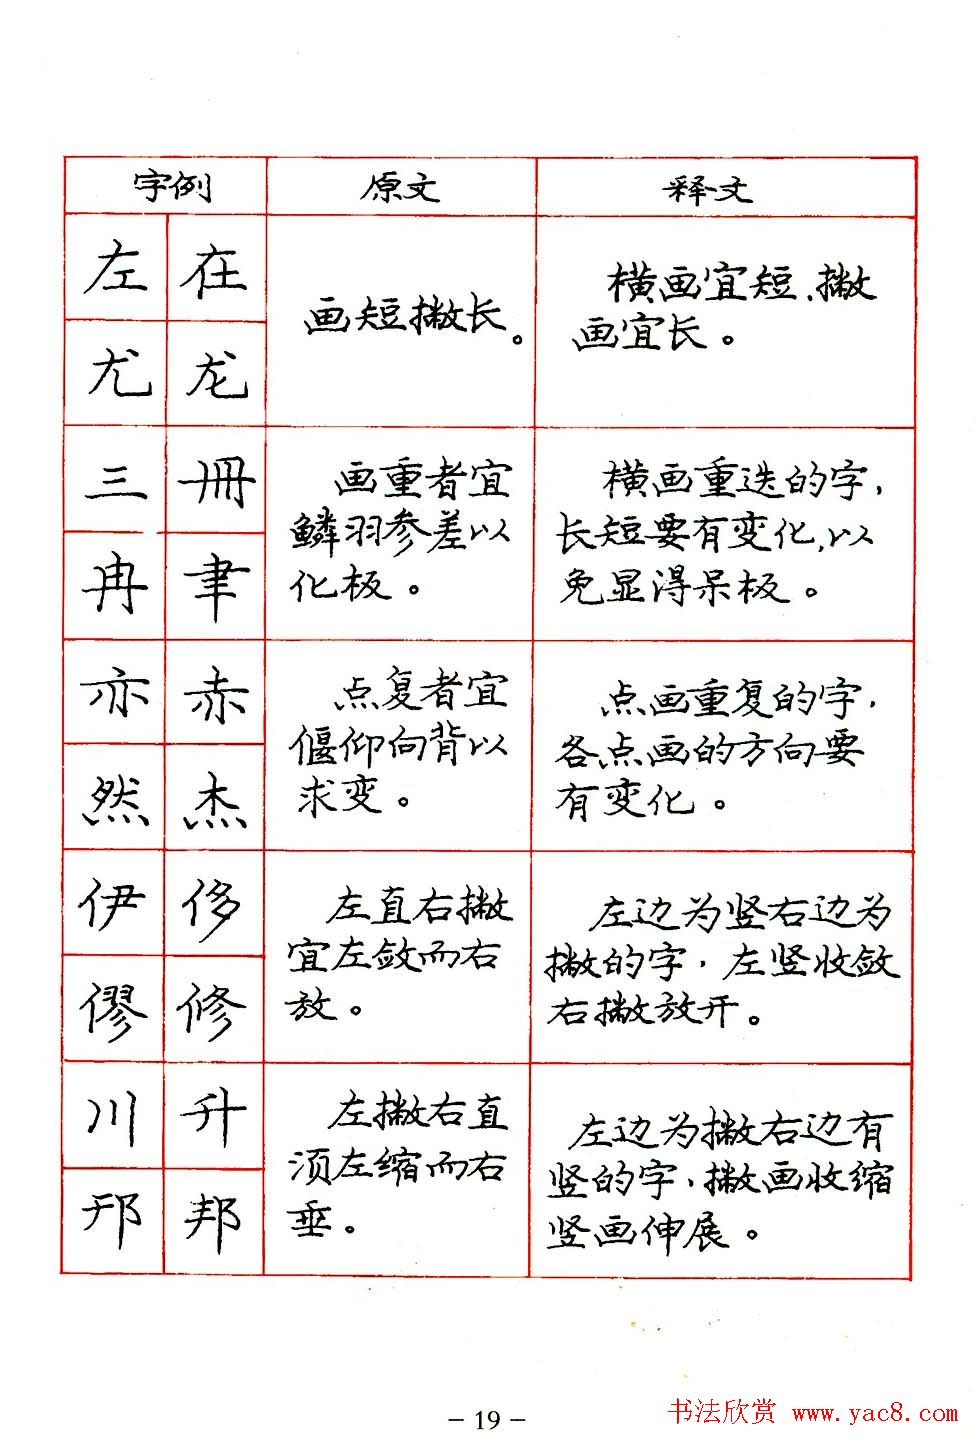 字例 原文 释文
左 在
尤 龙
画短撇长。
横画宜短,撇
画宜长。
三 冊
冉 聿
画重者宜
鳞羽参差以
化板。
横画重迭的字,
长短要有变化,以
免显得呆板。
亦 赤
然 杰
点复者宜
偃仰向背以
求变。
点画重复的字,
各点画的方向要
有变化。
伊 侈
僇 修
左直右撇
宜左敛而右
放。
左边为竖右边为
撇的字,左竖收敛
右撇放开。
川 升
邘 邦
左撇右直
须左缩而右
垂。
左边为撇右边有
竖的字,撇画收缩
竖画伸展。
- 19 -
书法欣赏 www.yac8.com